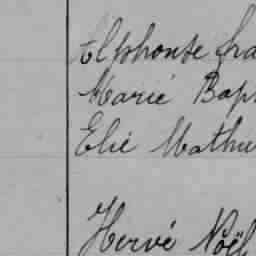 Alphonse fra
Marie Bap
Elie Mathu
Hervé Noël